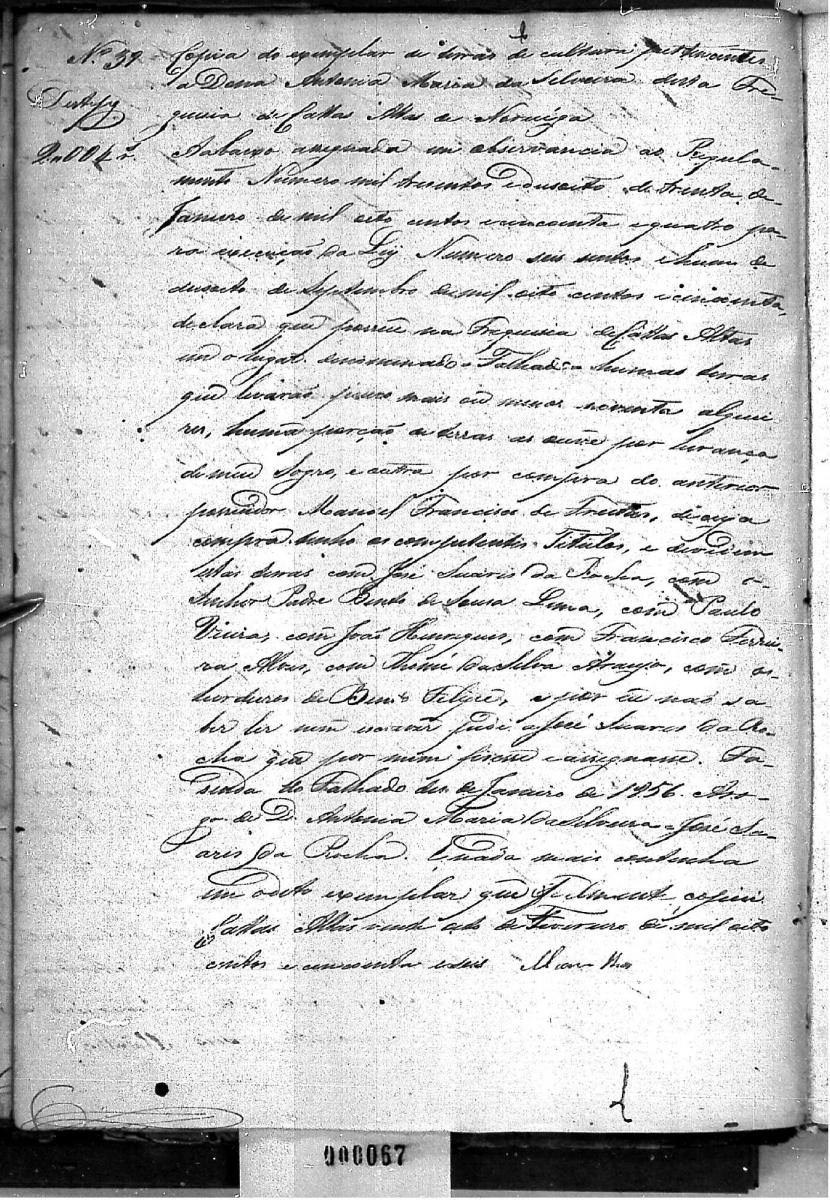 Nº 39 Copia do exemplar de terras de cultura pertencentes
a Dona Antonia Maria da Silveira desta Fre-
guesia de Cattas Altas de Noruéga
A abaixo assignada em observancia ao Regula-
mento Numero mil tresentos e dusoito de trenta de
Janeiro de mil oito centos e cincoenta e quatro pa-
ra execução da Ley Numero seis centos e hum de
dusoito de Septembro de mil oito centos e cincoenta,
declara que possue na Freguesia de Cattas Altas
em o lugar denominado - Talhado - humas terras
que levarão pouco mais ou menos noventa alquei-
res, huma porção de terras as ouve por herança
de meu Sogro, e outra por compra do anterior
possuidor Manoel Francisco de Freitas, de cuja
compra tenho os competentes Titulos, e dividem
estas terras com José Suáres da Rocha, com o
Senhor Padre Bento de Sousa Lima, com Paulo
Vieira, com João Henriques, com Francisco Ferrei-
ra Alves, com Thomé da Silva Araujo, com os
herdeiros de Bento Felipe, e por eu não sa-
ber ler nem escrever pedi a José Suares da Ro-
cha que por mim fisesse e assignasse. Fa-
senda do Talhado des de Janeiro de 1856. Aro-
go de D. Antonia Maria da Silveira - José Su-
ares da Rocha. E nada mais continha
em o dito exemplar que fielmente copiei
Cattas Altas vinte oito de Fevereiro de mil oito
centos e cincoenta e seis
000067